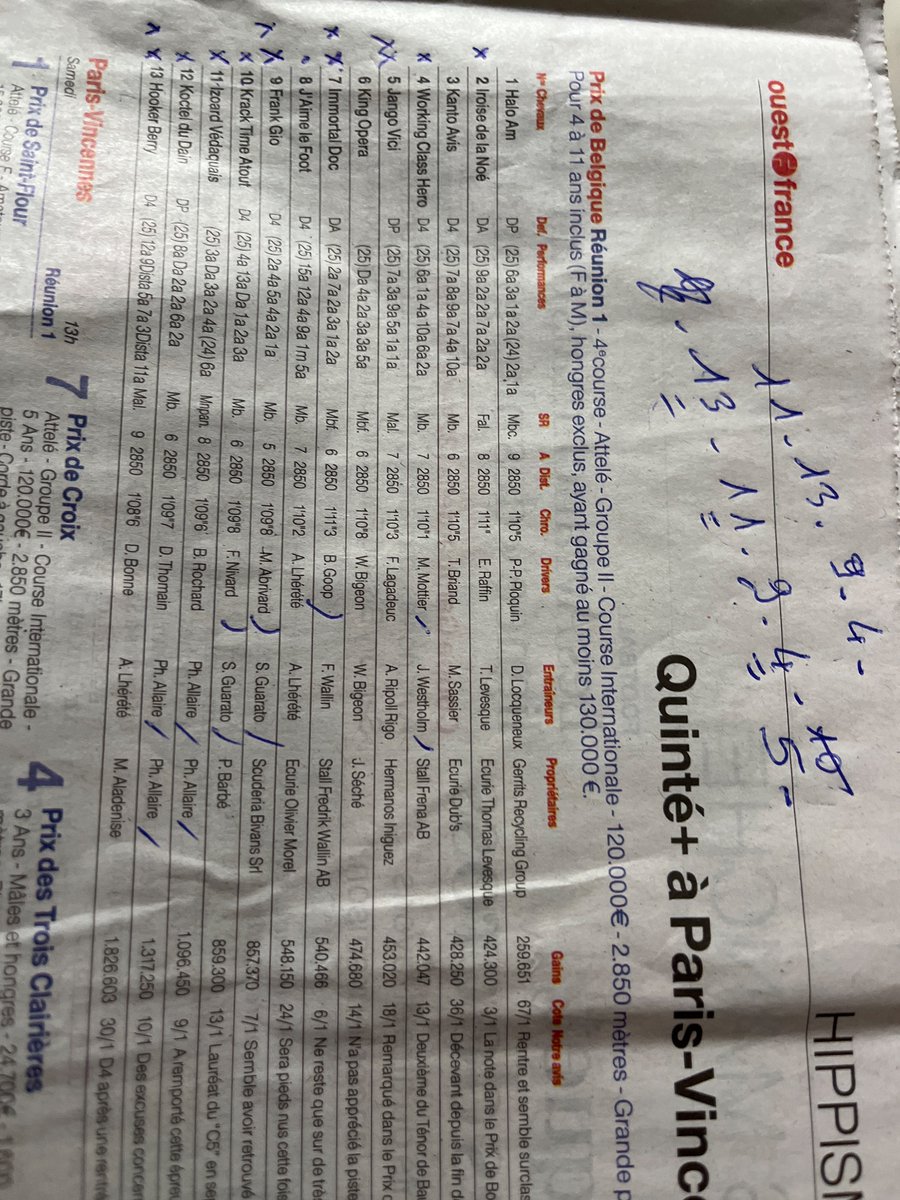 9 - 4 -
11 - 13 - 9 - 4 - 10
13 - 11 - 9 - 4 - 5 -
HIPPIS
ouest france
Quinté+ à Paris-Vinc
Prix de Belgique Réunion 1 - 4e course - Attelé - Groupe II - Course Internationale - 120.000€ - 2.850 mètres - Grande p
Pour 4 à 11 ans inclus (F à M), hongres exclus, ayant gagné au moins 130.000 €.
N° Chevaux Def. Performances SR A Dist. Chro. Drivers Entraîneurs Propriétaires Gains Cote Notre avis
1 Halo Am DP (25) 6a 3a 1a 2a (24) 2a, 1a Mbc. 9 2850 1'10"5 P-P. Ploquin D. Locqueneux Gerrits Recycling Group 259.651 67/1 Rentre et semble surclas
2 Iroise de la Noé DA (25) 9a 2a 2a 7a 2a 2a Fal. 8 2850 1'11" E. Raffin T. Levesque Ecurie Thomas Levesque 424.300 3/1 La note dans le Prix de Bo
3 Kanto Avis D4 (25) 7a 8a 9a 7a 4a 10a Mb. 6 2850 1'10"5 T. Briand M. Sassier Ecurie Dub's 428.250 36/1 Décevant depuis la fin d
4 Working Class Hero D4 (25) 6a 1a 4a 10a 6a 2a Mb. 7 2850 1'10"1 M. Mottier J. Westholm Stall Frena AB 442.047 13/1 Deuxième du Ténor de Ba
5 Jango Vici DP (25) 7a 3a 9a 5a 1a 1a Mal. 7 2850 1'10"3 F. Lagadeuc A. Ripoll Rigo Hermanos Iniguez 453.020 18/1 Remarqué dans le Prix d
6 King Opera (25) Da 4a 2a 3a 3a 5a Mbf. 6 2850 1'10"8 W. Bigeon W. Bigeon J. Séché 474.680 14/1 N'a pas apprécié la piste
7 Immortal Doc DA (25) 2a 7a 2a 3a 1a 2a Mbf. 6 2850 1'11"3 B. Goop F. Wallin Stall Fredrik Wallin AB 540.466 6/1 Ne reste que sur de trè
8 J'Aime le Foot D4 (25) 15a 12a 4a 9a 1m 5a Mb. 7 2850 1'10"2 A. Lhérété A. Lhérété Ecurie Olivier Morel 548.150 24/1 Sera pieds nus cette fois
9 Frank Gio D4 (25) 2a 4a 5a 4a 2a 1a Mb. 5 2850 1'09"8 M. Abrivard S. Guarato Scuderia Bivans Srl 857.370 7/1 Semble avoir retrouvé
10 Krack Time Atout D4 (25) 4a 13a Da 1a 2a 3a Mb. 6 2850 1'09"8 F. Nivard S. Guarato P. Barbé 859.300 13/1 Lauréat du "C5" en se
11 Izoard Védaquais (25) 3a Da 3a 2a 4a (24) 6a Mrpan. 8 2850 1'09"6 B. Rochard Ph. Allaire Ph. Allaire 1.096.450 9/1 A remporté cette épreu
12 Koctel du Dain DP (25) 8a Da 2a 2a 6a 2a Mb. 6 2850 1'09"7 D. Thomain Ph. Allaire Ph. Allaire 1.317.250 10/1 Des excuses concer
13 Hooker Berry D4 (25) 12a 9Dista 5a 7a 3Dista 11a Mal. 9 2850 1'08"6 D. Bonne A. Lhérété M. Aladenise 1.826.603 30/1 D4 après une rentr
Paris-Vincennes
Samedi 13h
1 Prix de Saint-Flour Réunion 1
7 Prix de Croix
Attelé - Groupe II - Course Internationale -
5 Ans - 120.000€ - 2.850 mètres - Grande
4 Prix des Trois Clairières
3 Ans - Mâles et hongres - 24.700€